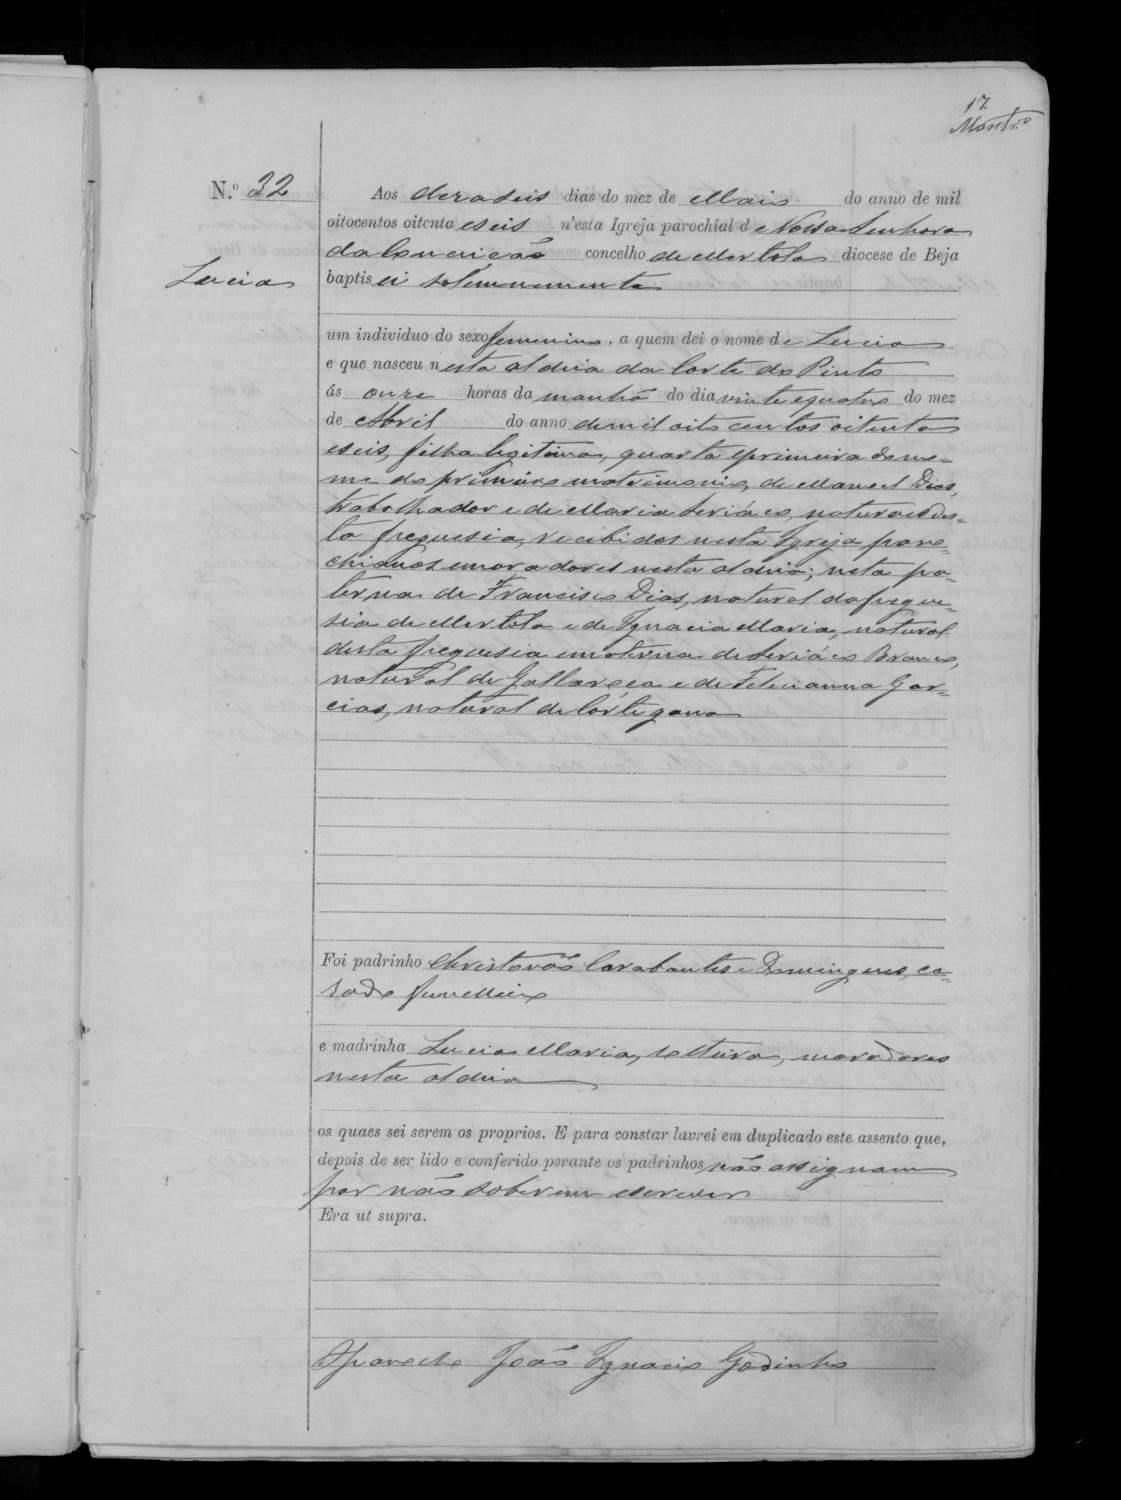 17.
N.º 32 Aos deraseis dias do mez de Maio do anno de mil
oitocentos oitenta e seis n'esta Igreja parochial de Nossa Senhora
da Conceição concelho de Mertola diocese de Beja
Lucia
baptisei solemnemente
um individuo do sexo femenino, a quem dei o nome de Lucia
e que nasceu nesta aldeia da Corte do Pinto
ás onze horas da manhã do dia vinte e quatro do mez
de Abril do anno de mil oito centos oitenta
e seis, filha legitima, quarta e primeira do no-
me do primeiro matrimonio, de Manoel Dias,
trabalhador e de Maria, naturaes des-
ta freguesia, recebidos nesta Igreja, paro-
chianos e moradores nesta aldeia; neta pa-
terna de Francisco Dias, natural da fregue-
sia de Mertola e de Ignacia Maria, natural
desta freguesia e materna de Branco,
natural de e de Felicianna Gar-
cias, natural de Côrtegana
Foi padrinho Christovão Carabantes e Domingues, ca-
sado
e madrinha Lucia Maria, solteira, moradores
nesta aldeia
os quaes sei serem os proprios. E para constar lavrei em duplicado este assento que,
depois de ser lido e conferido perante os padrinhos não assignam
por não saberem escrever
Era ut supra.
O parocho João Ignacio Godinho